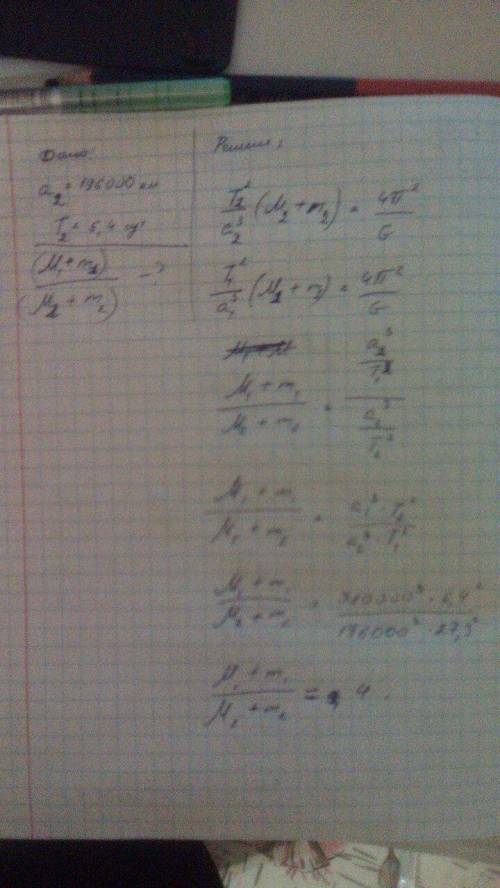 Дано:
a₂ = 196000 км
T₂ = 6,4 сут
(M₁ + m₂) / (M₂ + m₂) - ?
Решение:
T₂² / a₂³ (M₂ + m₂) = 4π² / G
T₁² / a₁³ (M₁ + m₁) = 4π² / G
(M₁ + m₁) / (M₂ + m₂) = (a₁³ / T₁²) / (a₂³ / T₂²)
(M₁ + m₁) / (M₂ + m₂) = (a₁³ · T₂²) / (a₂³ · T₁²)
(M₁ + m₁) / (M₂ + m₂) = (380000³ · 6,4²) / (196000³ · 27,3²)
(M₁ + m₁) / (M₂ + m₂) = 0,4.